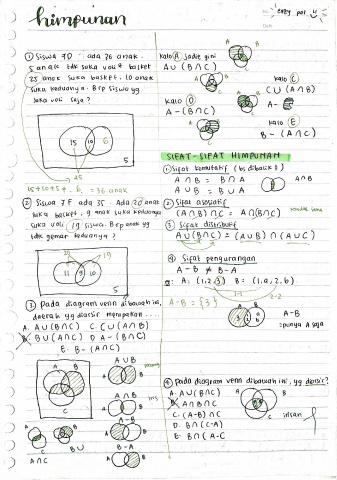 himpunan
① Siswa 7D ada 36 anak.
5 anak tdk suka voli & basket
25 anak suka basket, 10 anak
suka keduanya. Brp siswa yg
suka voli saja?
15 10 6
5
25
15+10+5+6 = 36 anak
② Siswa 7E ada 35. Ada 20 anak
suka basket, 9 anak suka keduanya
suka voli 19 siswa. Brp anak yg
tdk gemar keduanya?
20 19
11 9 10
5
③ Pada diagram venn dibawah ini,
daerah yg diarsir merupakan ....
A. A∪(B∩C) C. C∪(A∩B)
B. B∪(A∩C) D. A-(B∩C)
E. B-(A∩C)
A B
C
A∪B
A B
A∩B
A B
A-B
A B
B-A
A∩C
B∪
kalo A jadit gini
A∪(B∩C)
A B
C
kalo C
C∪(A∩B)
kalo D
A-(B∩C)
A-
kalo E
B-(A∩C)
SIFAT-SIFAT HIMPUNAN
① Sifat komutatif (bs dibalik²)
A∩B = B∩A
A∪B = B∪A
A∩B
② Sifat asosiatif
(A∩B)∩C = A∩(B∩C)
③ Sifat distributif
A∪(B∩C) = (A∪B)∩(A∪C)
④ Sifat pengurangan
A-B ≠ B-A
A: {1,2,3} B = {1,a,2,b}
1-1
2-2
A-B = {3}
A-B
=punya A saja
④ Pada diagram venn dibawah ini, yg diarsir?
A. A∪(B∩C)
B. A∩B∩C
C. (A-B)∩C
D. B∩(C-A)
E. B∩(A-C
A B
C
irisan